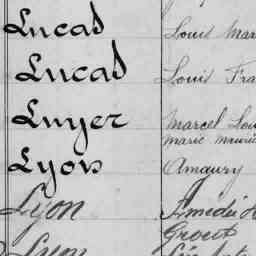 Lucas Louis Mar
Lucas Louis Fra
Luyer Marcel Lou
Marie Mauric
Lyon Amaury
Lyon Amédée
Lyon